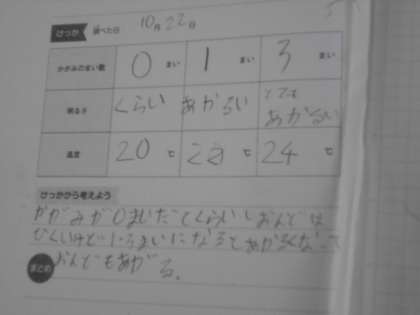 けっか 調べた日 10月22日
かがみのまい数 0まい 1まい 3まい
明るさ くらい あかるい とても あかるい
温度 20℃ 22℃ 24℃
けっかから考えよう
かがみが0まいだとくらいしおんどは
ひくいけど1、3まいになるとあかるくなって
まとめ おんどもあがる。